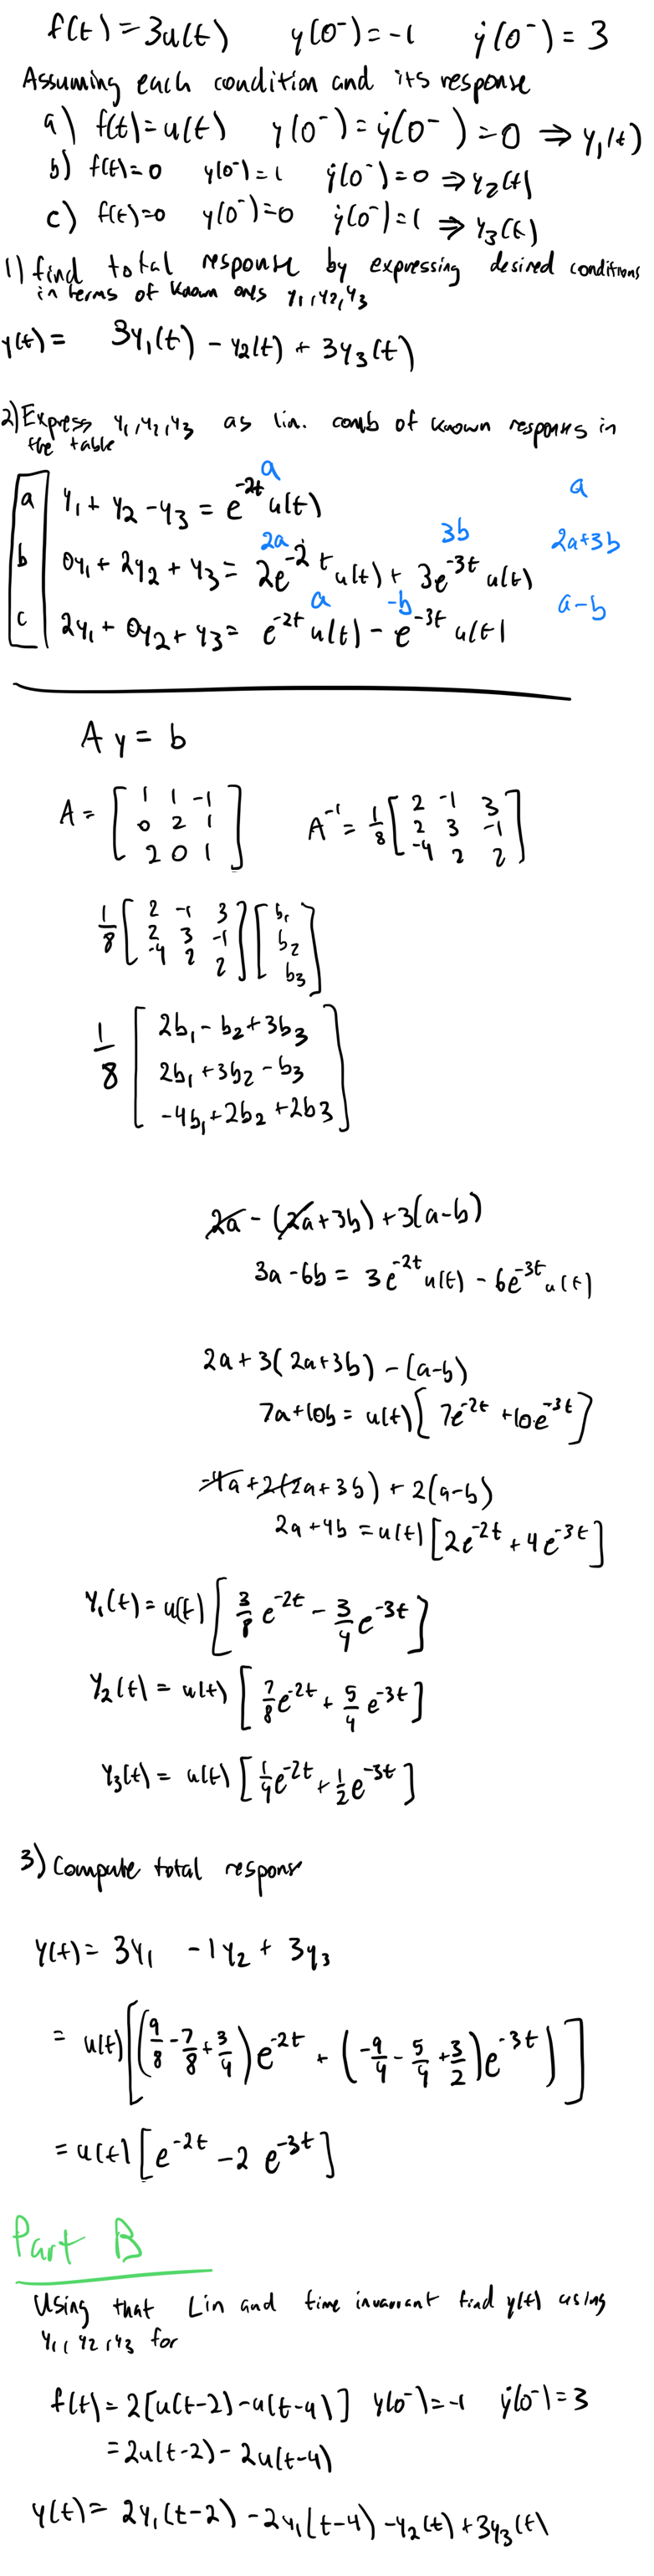 f(t) = 3u(t) y(0⁻) = -1 ẏ(0⁻) = 3
Assuming each condition and its response
a) f(t) = u(t) y(0⁻) = ẏ(0⁻) = 0 ⇒ y₁(t)
b) f(t)=0 y(0⁻) = 1 ẏ(0⁻) = 0 ⇒ y₂(t)
c) f(t)=0 y(0⁻)=0 ẏ(0⁻)=1 ⇒ y₃(t)
1) find total response by expressing desired conditions
in terms of known ones y₁, y₂, y₃
y(t) = 3y₁(t) - y₂(t) + 3y₃(t)
2) Express y₁, y₂, y₃ as lin. comb of known responses in
the table
a
a y₁ + y₂ - y₃ = e^{-2t} u(t) a
2a 3b
b 0y₁ + 2y₂ + y₃ = 2e^{-2t} u(t) + 3e^{-3t} u(t) 2a+3b
a -b
c 2y₁ + 0y₂ + y₃ = e^{-2t} u(t) - e^{-3t} u(t) a-b
A y = b
A = [1 1 -1; 0 2 1; 2 0 1] A⁻¹ = 1/8 [2 -1 3; 2 3 -1; -4 2 2]
1/8 [2 -1 3; 2 3 -1; -4 2 2] [b₁; b₂; b₃]
1/8 [2b₁ - b₂ + 3b₃
2b₁ + 3b₂ - b₃
-4b₁ + 2b₂ + 2b3]
2a - (2a+3b) + 3(a-b)
3a - 6b = 3e^{-2t} u(t) - 6e^{-3t} u(t)
2a + 3(2a+3b) - (a-b)
7a+10b = u(t)[7e^{-2t} + 10e^{-3t}]
-4a + 2(2a+3b) + 2(a-b)
2a + 4b = u(t)[2e^{-2t} + 4e^{-3t}]
y₁(t) = u(t)[3/8 e^{-2t} - 3/4 e^{-3t}]
y₂(t) = u(t)[7/8 e^{-2t} + 5/4 e^{-3t}]
y₃(t) = u(t)[1/4 e^{-2t} + 1/2 e^{-3t}]
3) Compute total response
y(t) = 3y₁ - 1y₂ + 3y₃
= u(t)[(9/8 - 7/8 + 3/4)e^{-2t} + (-9/4 - 5/4 + 3/2)e^{-3t})]
= u(t)[e^{-2t} - 2 e^{-3t}]
Part B
Using that Lin and time invariant find y(t) using
y₁, y₂, y₃ for
f(t) = 2[u(t-2) - u(t-4)] y(0⁻) = -1 ẏ(0⁻) = 3
= 2u(t-2) - 2u(t-4)
y(t) = 2y₁(t-2) - 2y₁(t-4) - y₂(t) + 3y₃(t)